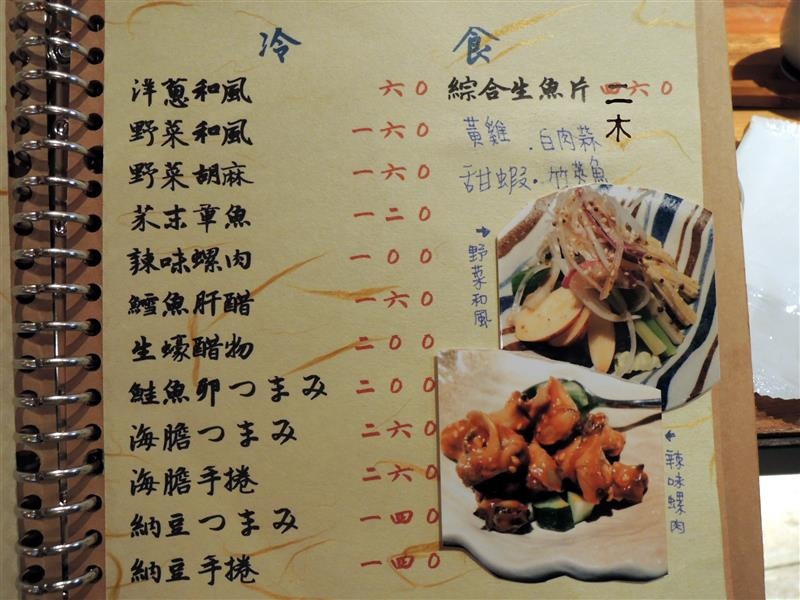 冷食
洋蔥和風 六0
野菜和風 一六0
野菜胡麻 一六0
芥末章魚 一二0
辣味螺肉 一00
鱈魚肝醋 一六0
生蠔醋物 二00
鮭魚卵つまみ 二00
海膽つまみ 二六0
海膽手捲 二六0
納豆つまみ 一四0
納豆手捲 一四0
綜合生魚片 四六0
二木
黃雞．白肉蒜
甜蝦．竹筴魚
野菜和風
辣味螺肉